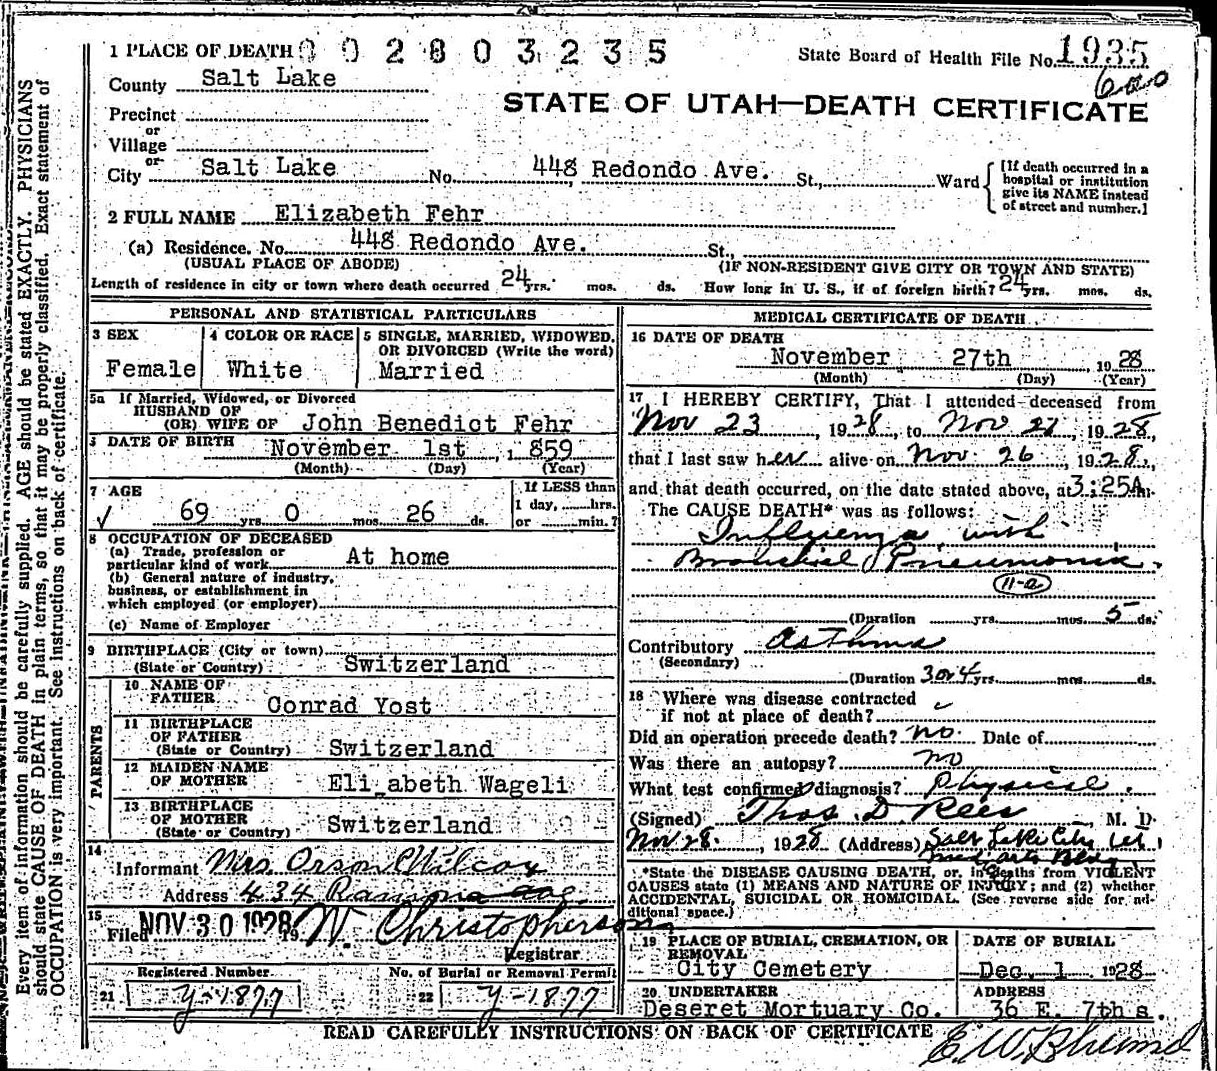 1 PLACE OF DEATH 0 0 2 8 0 3 2 3 5
State Board of Health File No. 1935
County Salt Lake
600
STATE OF UTAH—DEATH CERTIFICATE
Precinct
or
Village
or
City Salt Lake No. 448 Redondo Ave. St., Ward
[If death occurred in a hospital or institution give its NAME instead of street and number.]
2 FULL NAME Elizabeth Fehr
(a) Residence. No. 448 Redondo Ave. St.,
(USUAL PLACE OF ABODE) (IF NON-RESIDENT GIVE CITY OR TOWN AND STATE)
Length of residence in city or town where death occurred 24 yrs. mos. ds. How long in U. S., if of foreign birth? 24 yrs. mos. ds.
PERSONAL AND STATISTICAL PARTICULARS
3 SEX Female
4 COLOR OR RACE White
5 SINGLE, MARRIED, WIDOWED, OR DIVORCED (Write the word) Married
5a If Married, Widowed, or Divorced
HUSBAND OF
(OR) WIFE OF John Benedict Fehr
DATE OF BIRTH November 1st, 1859
(Month) (Day) (Year)
7 AGE 69 yrs. 0 mos. 26 ds.
If LESS than
1 day, hrs.
or min.?
8 OCCUPATION OF DECEASED
(a) Trade, profession or
particular kind of work At home
(b) General nature of industry,
business, or establishment in
which employed (or employer)
(c) Name of Employer
9 BIRTHPLACE (City or town)
(State or Country) Switzerland
PARENTS
10 NAME OF
FATHER Conrad Yost
11 BIRTHPLACE
OF FATHER
(State or Country) Switzerland
12 MAIDEN NAME
OF MOTHER Eli abeth Wageli
13 BIRTHPLACE
OF MOTHER
(State or Country) Switzerland
14
Informant Mrs. Orson Wilcox
Address 434 Ramona ave.
15
Filed NOV 30 1928 19 W. Christopherson
Registrar
Registered Number
21 y-1877
No. of Burial or Removal Permit
22 y-1877
MEDICAL CERTIFICATE OF DEATH
16 DATE OF DEATH
November 27th 1928
(Month) (Day) (Year)
17 I HEREBY CERTIFY, That I attended deceased from
Nov 23, 1928, to Nov 27, 1928,
that I last saw her alive on Nov. 26, 1928,
and that death occurred, on the date stated above, at 3:25A m.
The CAUSE DEATH* was as follows:
Influenza with
Bronchial Pneumonia.
11-a
(Duration yrs. mos. 5 ds.
Contributory Asthma
(Secondary)
(Duration 3 or 4 yrs. mos. ds.
18 Where was disease contracted
if not at place of death?
Did an operation precede death? no. Date of
Was there an autopsy? no
What test confirmed diagnosis? Physical.
(Signed) Thos. D. Rees, M. D.
Nov 28, 1928 (Address) Salt Lake City Ut
Med. Arts Bldg
*State the DISEASE CAUSING DEATH, or, in deaths from VIOLENT
CAUSES state (1) MEANS AND NATURE OF INJURY; and (2) whether
ACCIDENTAL, SUICIDAL OR HOMICIDAL. (See reverse side for ad-
ditional space.)
19 PLACE OF BURIAL, CREMATION, OR
REMOVAL
City Cemetery
DATE OF BURIAL
Dec. 1 1928
20 UNDERTAKER
Deseret Mortuary Co.
ADDRESS
36 E. 7th s.
READ CAREFULLY INSTRUCTIONS ON BACK OF CERTIFICATE
Every item of information should be carefully supplied. AGE should be stated EXACTLY. PHYSICIANS
should state CAUSE OF DEATH in plain terms, so that it may be properly classified. Exact statement of
OCCUPATION is very important. See instructions on back of certificate.